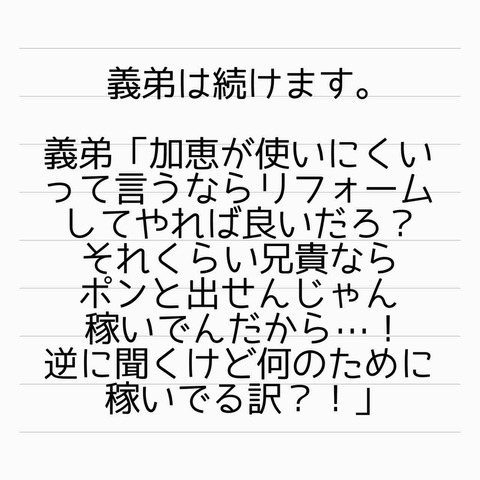 義弟は続けます。
義弟「加恵が使いにくい
って言うならリフォーム
してやれば良いだろ？
それくらい兄貴なら
ポンと出せんじゃん
稼いでんだから…！
逆に聞くけど何のために
稼いでる訳？！」